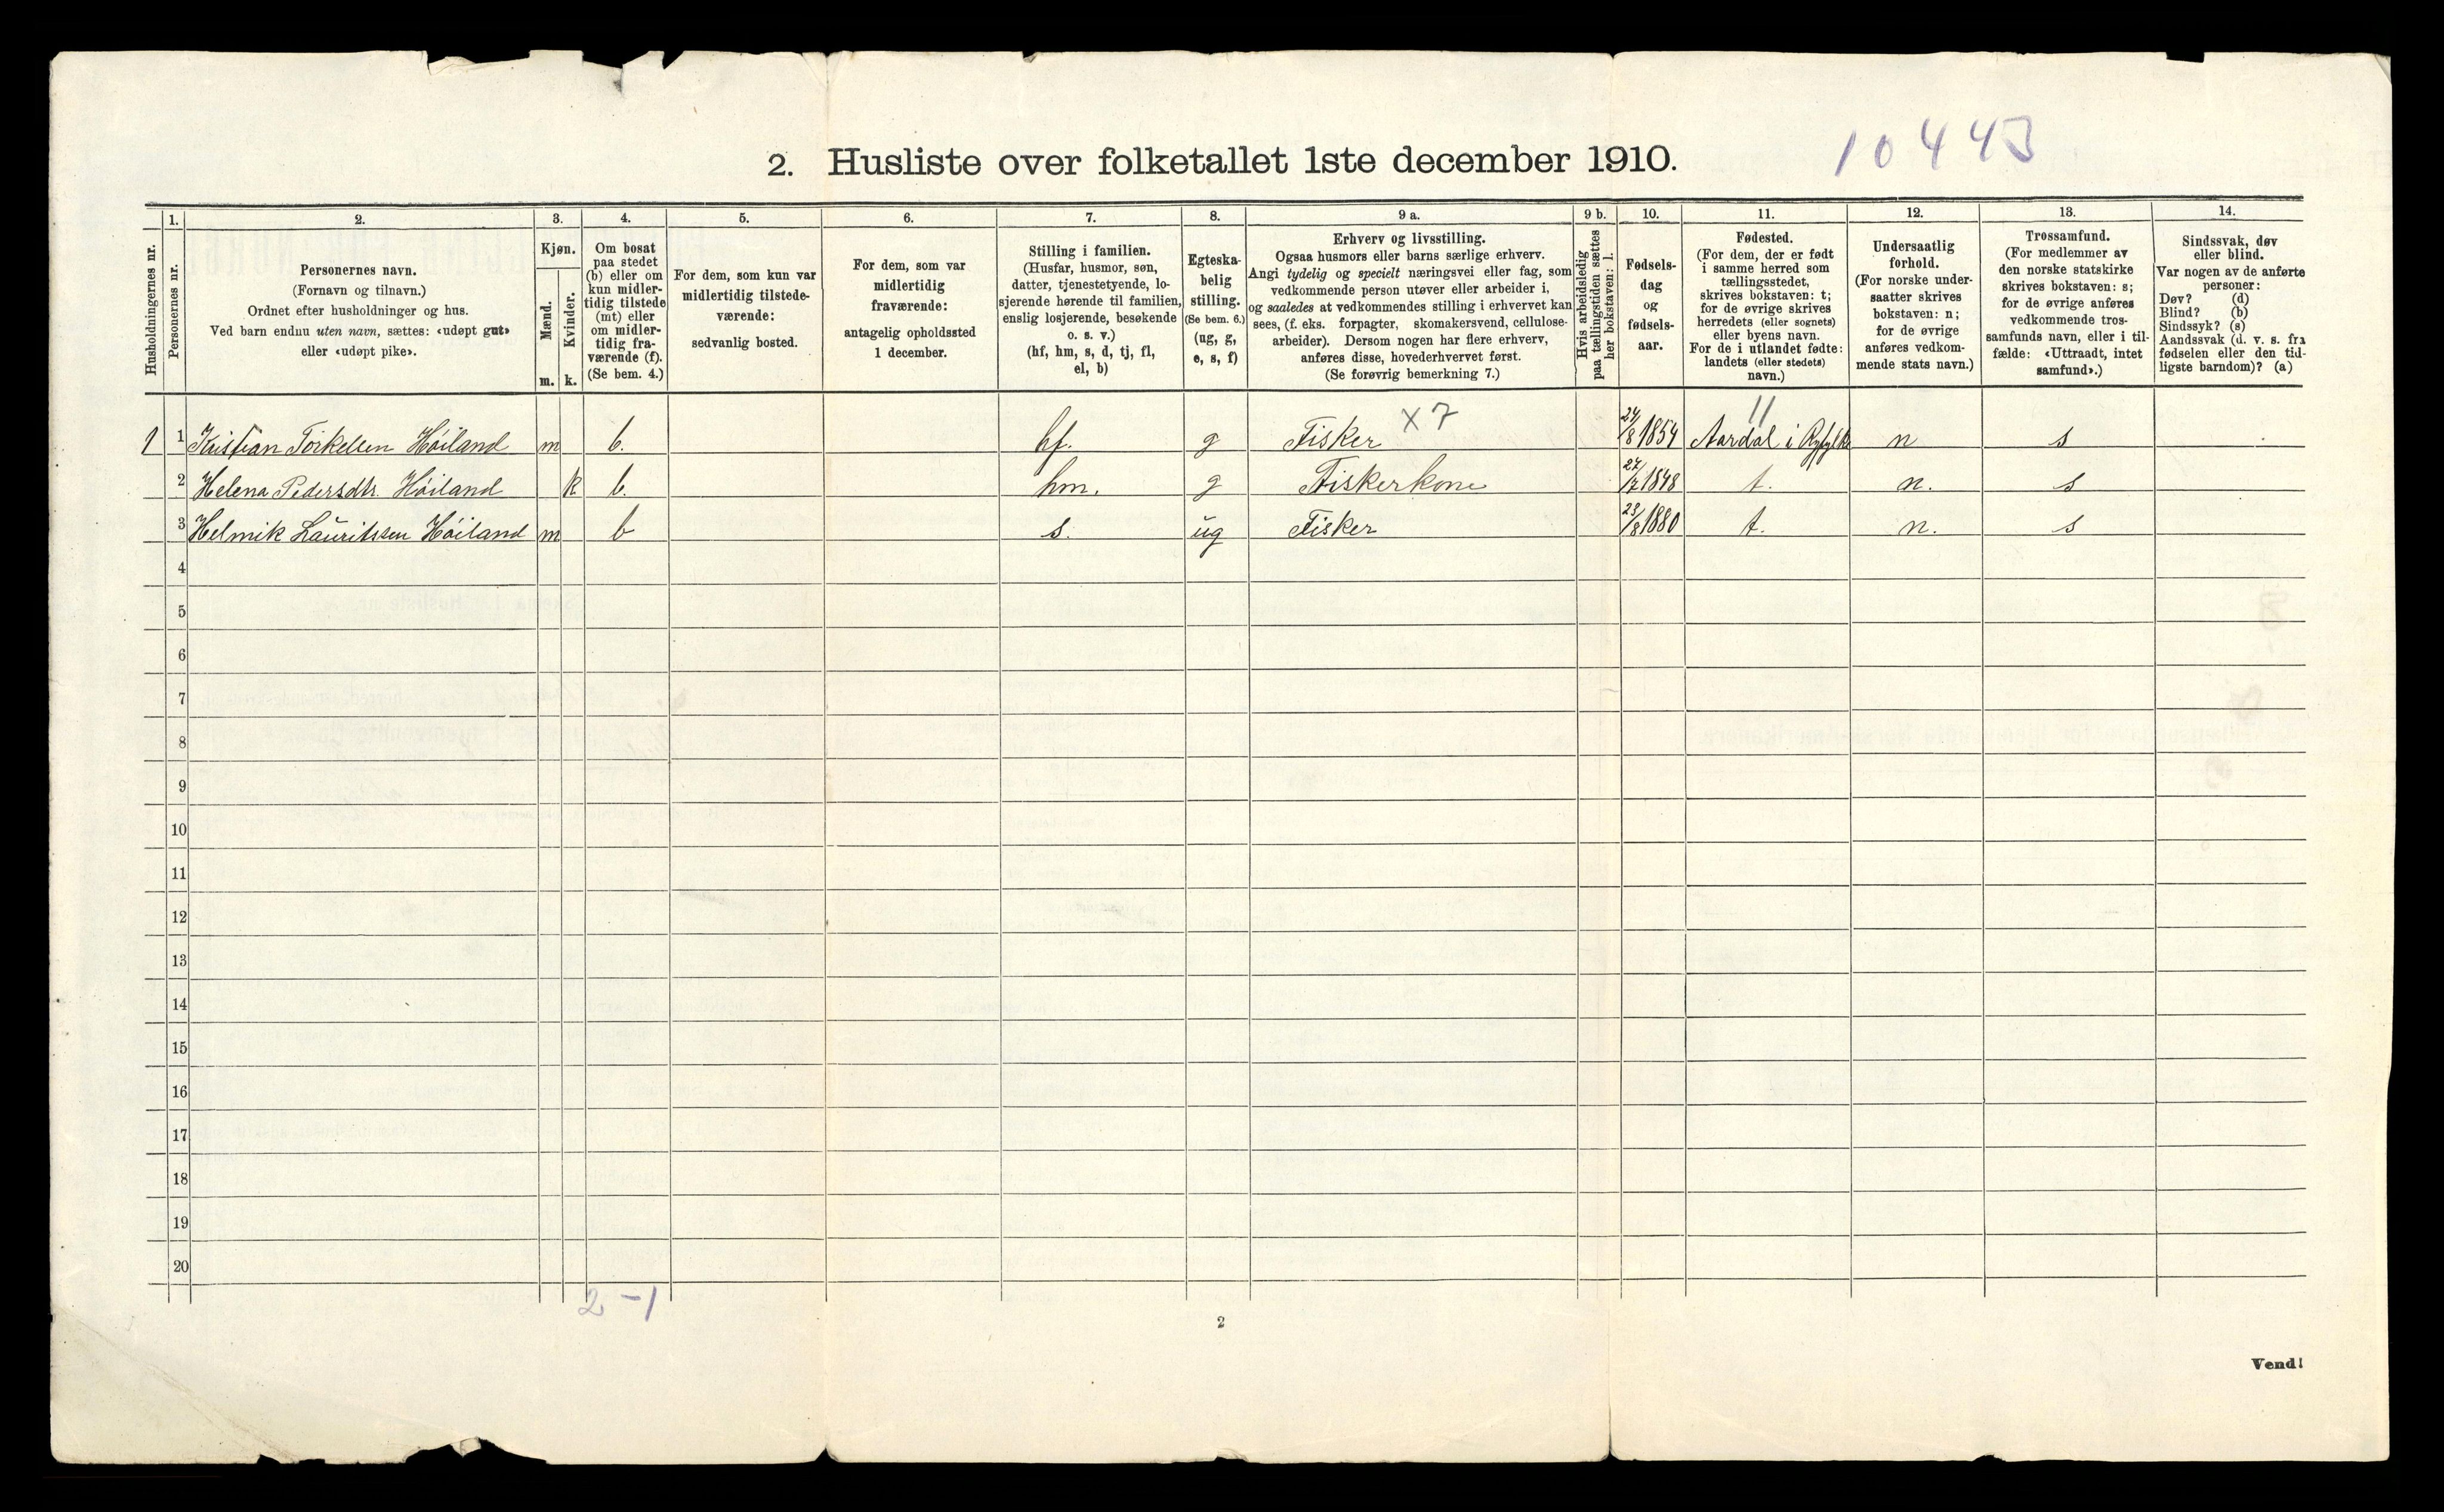 10443
2. Husliste over folketallet 1ste december 1910.
Husholdningernes nr.
1.
Personernes nr.
2.
Personernes navn.
(Fornavn og tilnavn.)
Ordnet efter husholdninger og hus.
Ved barn endnu uten navn, sættes: «udøpt gut»
eller «udøpt pike».
3.
Kjøn.
Mænd.
m.
Kvinder.
k.
4.
Om bosat
paa stedet
(b) eller om
kun midler-
tidig tilstede
(mt) eller
om midler-
tidig fra-
værende (f).
(Se bem. 4.)
5.
For dem, som kun var
midlertidig tilstede-
værende:
sedvanlig bosted.
6.
For dem, som var
midlertidig
fraværende:
antagelig opholdssted
1 december.
7.
Stilling i familien.
(Husfar, husmor, søn,
datter, tjenestetyende, lo-
sjerende hørende til familien,
enslig losjerende, besøkende
o. s. v.)
(hf, hm, s, d, tj, fl,
el, b)
8.
Egteska-
belig
stilling.
(Se bem. 6.)
(ug, g,
e, s, f)
9 a.
Erhverv og livsstilling.
Ogsaa husmors eller barns særlige erhverv.
Angi tydelig og specielt næringsvei eller fag, som
vedkommende person utøver eller arbeider i,
og saaledes at vedkommendes stilling i erhvervet kan
sees, (f. eks. forpagter, skomakersvend, cellulose-
arbeider). Dersom nogen har flere erhverv,
anføres disse, hovederhvervet først.
(Se forøvrig bemerkning 7.)
9 b.
Hvis arbeidsledig
paa tællingstiden sættes
her bokstaven: l.
10.
Fødsels-
dag
og
fødsels-
aar.
11.
Fødested.
(For dem, der er født
i samme herred som
tællingsstedet,
skrives bokstaven: t;
for de øvrige skrives
herredets (eller sognets)
eller byens navn.
For de i utlandet fødte:
landets (eller stedets)
navn.)
12.
Undersaatlig
forhold.
(For norske under-
saatter skrives
bokstaven: n;
for de øvrige
anføres vedkom-
mende stats navn.)
13.
Trossamfund.
(For medlemmer av
den norske statskirke
skrives bokstaven: s;
for de øvrige anføres
vedkommende tros-
samfunds navn, eller i til-
fælde: «Uttraadt, intet
samfund».)
14.
Sindssvak, døv
eller blind.
Var nogen av de anførte
personer:
Døv? (d)
Blind? (b)
Sindssyk? (s)
Aandssvak (d. v. s. fra
fødselen eller den tid-
ligste barndom)? (a)
X 7 11
1 1 Kristian Torkelsen Höiland m b. hf. g Fisker 24/8 1854 Aardal i Ryfylke n s
2 Helena Pedersdtr. Höiland k b. hm. g Fiskerkone 27/7 1848 t. n. s
3 Helmik Lauritssen Höiland m b s. ug Fisker 23/8 1880 t. n. s
4
5
6
7
8
9
10
11
12
13
14
15
16
17
18
19
20
2 - 1
2
Vend!